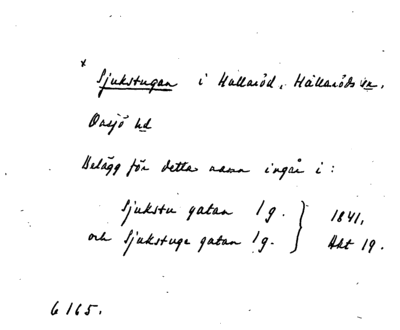 * Sjukstugan i Hallaröd, Hallaröds sn.
Onsjö hd
Belägg för detta namn ingår i:
Sjukstu gatan 1 g. } 1841,
och Sjukstuge gatan 1 g. } Akt 19.
6165.